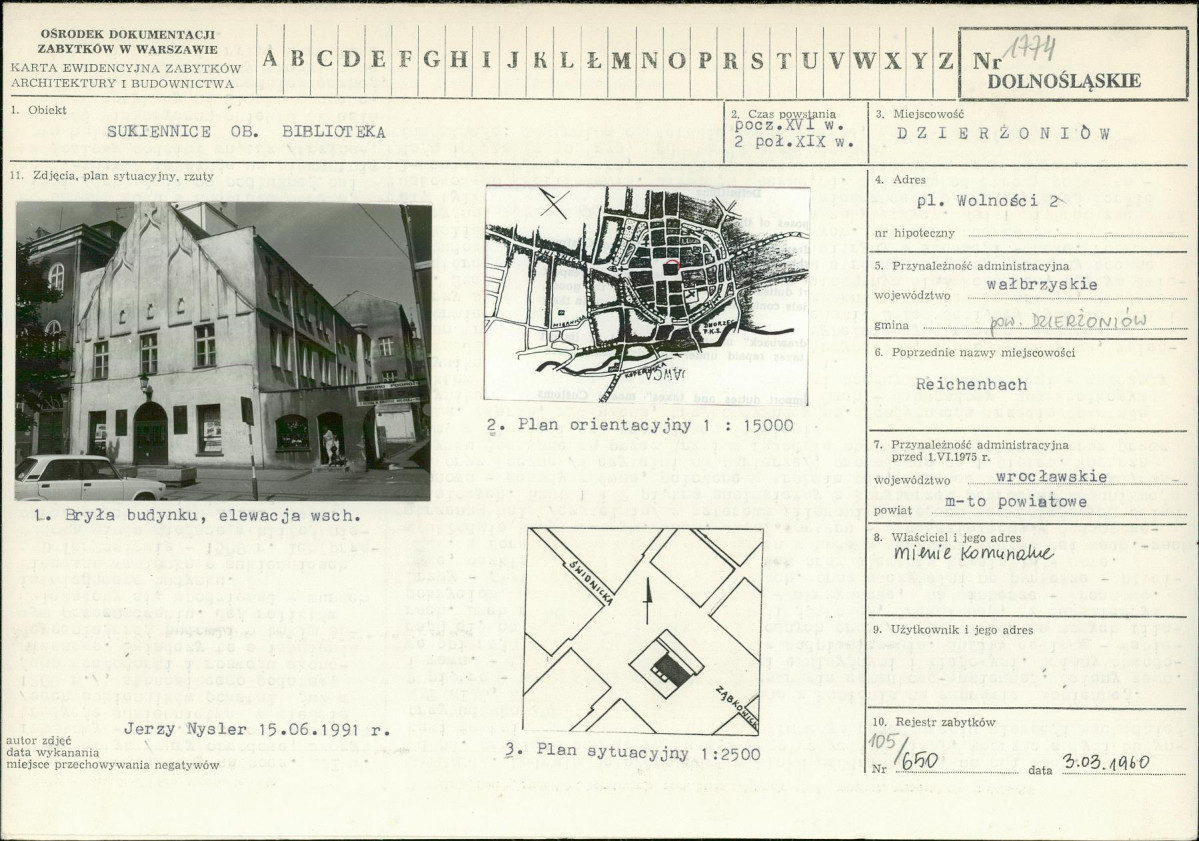 OŚRODEK DOKUMENTACJI
ZABYTKÓW W WARSZAWIE
KARTA EWIDENCYJNA ZABYTKÓW
ARCHITEKTURY I BUDOWNICTWA
A B C D E F G H I J K L Ł M N O P R S T U V W X Y Z
Nr 1774
DOLNOŚLĄSKIE
1. Obiekt
SUKIENNICE OB. BIBLIOTEKA
2. Czas powstania
pocz.XVI w.
2 poł.XIX w.
3. Miejscowość
DZIERŻONIÓW
11. Zdjęcia, plan sytuacyjny, rzuty
1. Bryła budynku, elewacja wsch.
DWORZEC
P.K.S.
KOPERNIKA
2. Plan orientacyjny 1 : 15000
ŚWIDNICKA
ZĄBKOWICKA
3. Plan sytuacyjny 1:2500
Jerzy Nysler 15.06.1991 r.
autor zdjęć
data wykanania
miejsce przechowywania negatywów
4. Adres
pl. Wolności 2
nr hipoteczny
5. Przynależność administracyjna
województwo wałbrzyskie
gmina pow. DZIERŻONIÓW
6. Poprzednie nazwy miejscowości
Reichenbach
7. Przynależność administracyjna
przed 1.VI.1975 r.
województwo wrocławskie
powiat m-to powiatowe
8. Właściciel i jego adres
Mienie Komunalne
9. Użytkownik i jego adres
10. Rejestr zabytków
Nr 105/650 data 3.03.1960